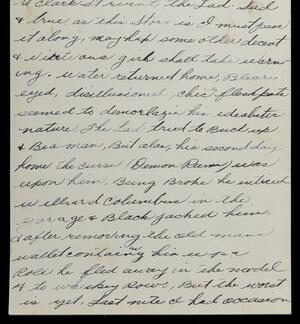 & true, as this Story is I must pass
it along, may hap some other decent
& virtuous girk shall take warn-
ing. Water returned home, Bleary
eyed, disillusioned, Chic
seemed to demorlazie his idealistic
nature, The Lad tried to Buck up
& Be a man, But alas, his second day
home the curse (Demon Rum) was
upon him, Being Broke he enticed
Willard Columbus in the
Garage & Black jacked him.
& after removing the old mans
wallet containing his W.P.A
Role he fled away in the model
T to Whiskey Row. But the worst
is yet, Last nite I had occasion